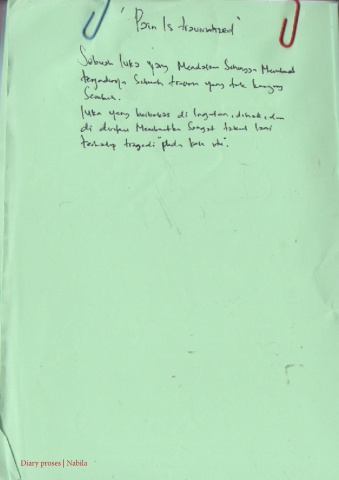 "Pain Is traumatized"
Sebuah luka yang Mendalam Sehingga Membuat
terjadinya Sebuah trauma yang tak kunjung
Sembuh.
luka yang berbekas di Ingatan, dihati, dan
di Membuatku Sangat takut lari
terhadap tragedi "pada kala itu".
Diary proses | Nabila